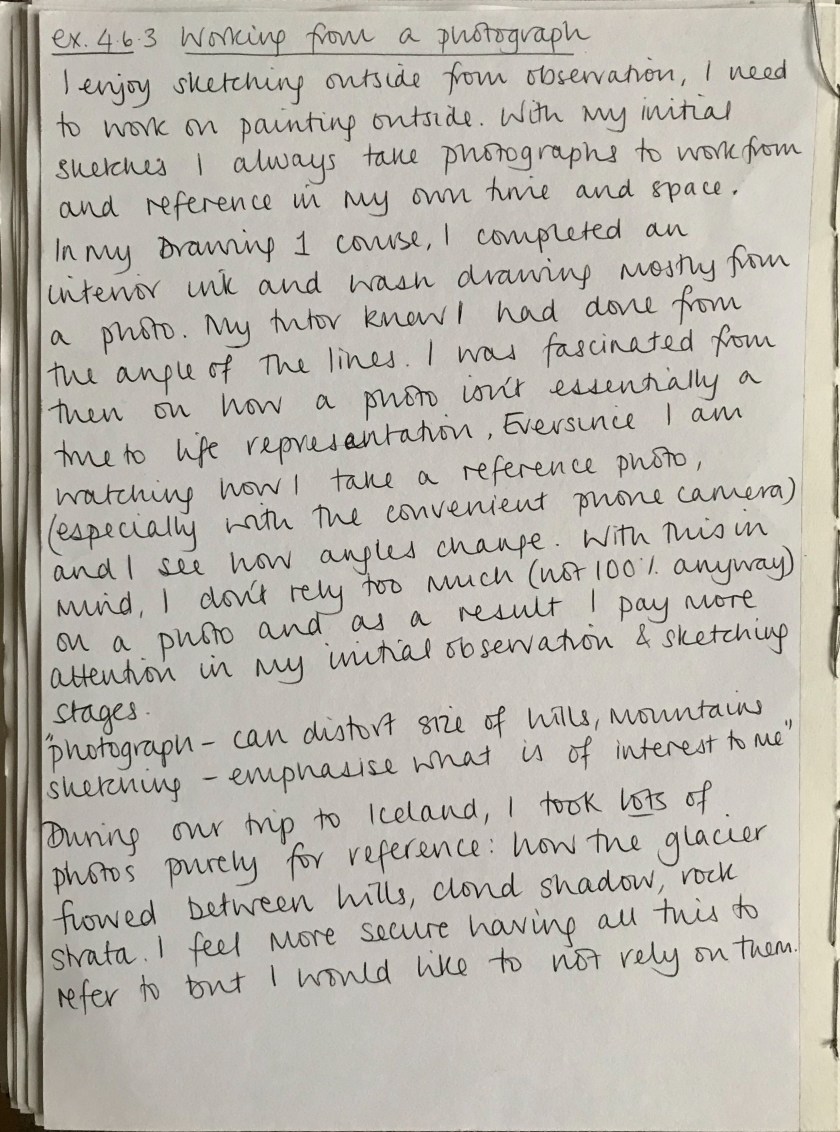 ex. 4.6.3 Working from a photograph
I enjoy sketching outside from observation, I need
to work on painting outside. With my initial
sketches I always take photographs to work from
and reference in my own time and space.
In my Drawing 1 course, I completed an
interior ink and wash drawing mostly from
a photo. My tutor knew I had done from
the angle of the lines. I was fascinated from
then on how a photo isn't essentially a
true to life representation, Eversince I am
watching how I take a reference photo,
(especially with the convenient phone camera)
and I see how angles change. With this in
mind, I don't rely too much (not 100% anyway)
on a photo and as a result I pay more
attention in my initial observation & sketching
stages.
"photograph - can distort size of hills, mountains
sketching - emphasise what is of interest to me"
During our trip to Iceland, I took lots of
photos purely for reference: how the glacier
flowed between hills, cloud shadow, rock
strata. I feel more secure having all this to
refer to but I would like to not rely on them.